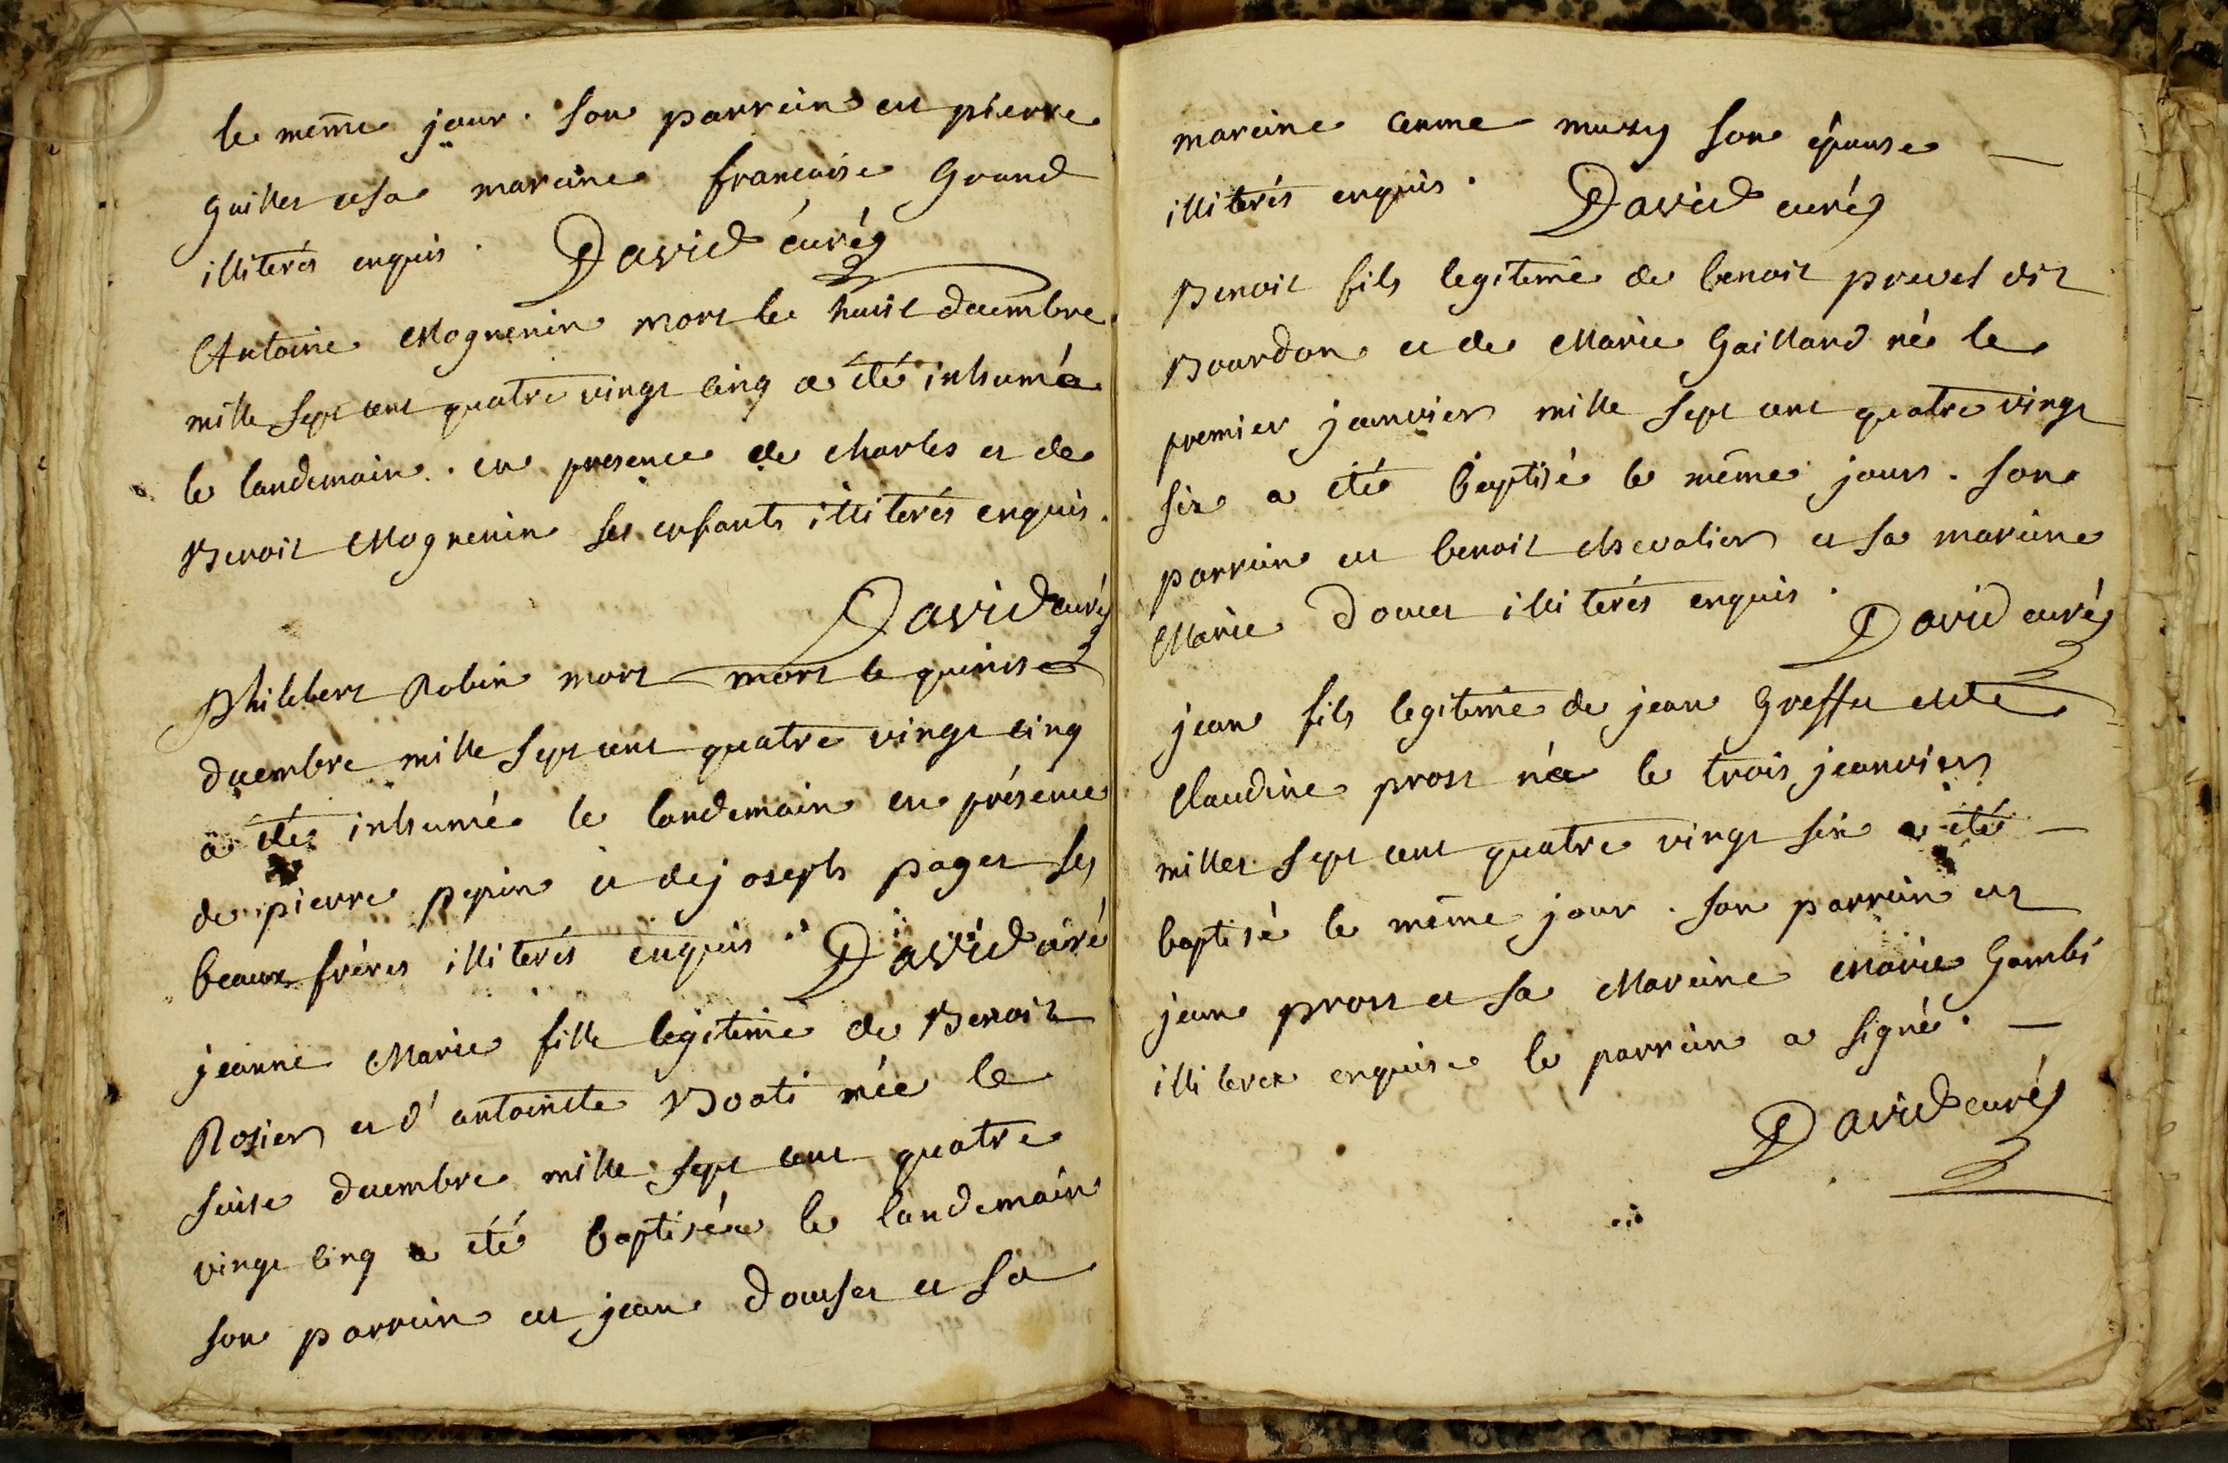 le meme jour. son parrein est pierre
Guillet et sa mareine francoise Grand
illiterés enquis. David curé
Antoine Mognenin mort le huit decembre
mille sept cent quatre vingt cinq a été inhumé
le landemain. en presence de charles et de
Benoit Mognenin ses enfants illiterés enquis.
David curé
Philibert Robin mort mort le quinse
decembre mille sept cent quatre vingt cinq
a été inhumé le landemain en présence
de pierre pepin et de joseph paget ses
beaux frères illiterés enquis. David curé
jeanne Marie fille legitime de Benoit
Rosier et d'antoinete Boati née le
seise decembre mille sept cent quatre
vingt cinq a été baptisée le landemain
son parrein est jean Douset et sa
mareine anne muzy son épouse —
illiterés enquis. David curé
Benoit fils legitime de benoit prevel dit
Bourdon et de Marie Gaillard né le
premier janvier mille sept cent quatre vingt
six a été baptisé le même jour. son
parrein est benoit chevalier et sa mareine
Marie Doucet illiterés enquis.
David curé
jean fils legitime de jean Greffet et de
claudine prost né le trois jeanvier
mille sept cent quatre vingt six a été —
baptisé le même jour. son parrein est
jean prost et sa Mareine Marie Gambi
illiteree enquise le parrein a signé. —
David curé